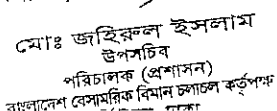 মোঃ জহিরুল ইসলাম
উপসচিব
পরিচালক (প্রশাসন)
বাংলাদেশ বেসামরিক বিমান চলাচল কর্তৃপক্ষ